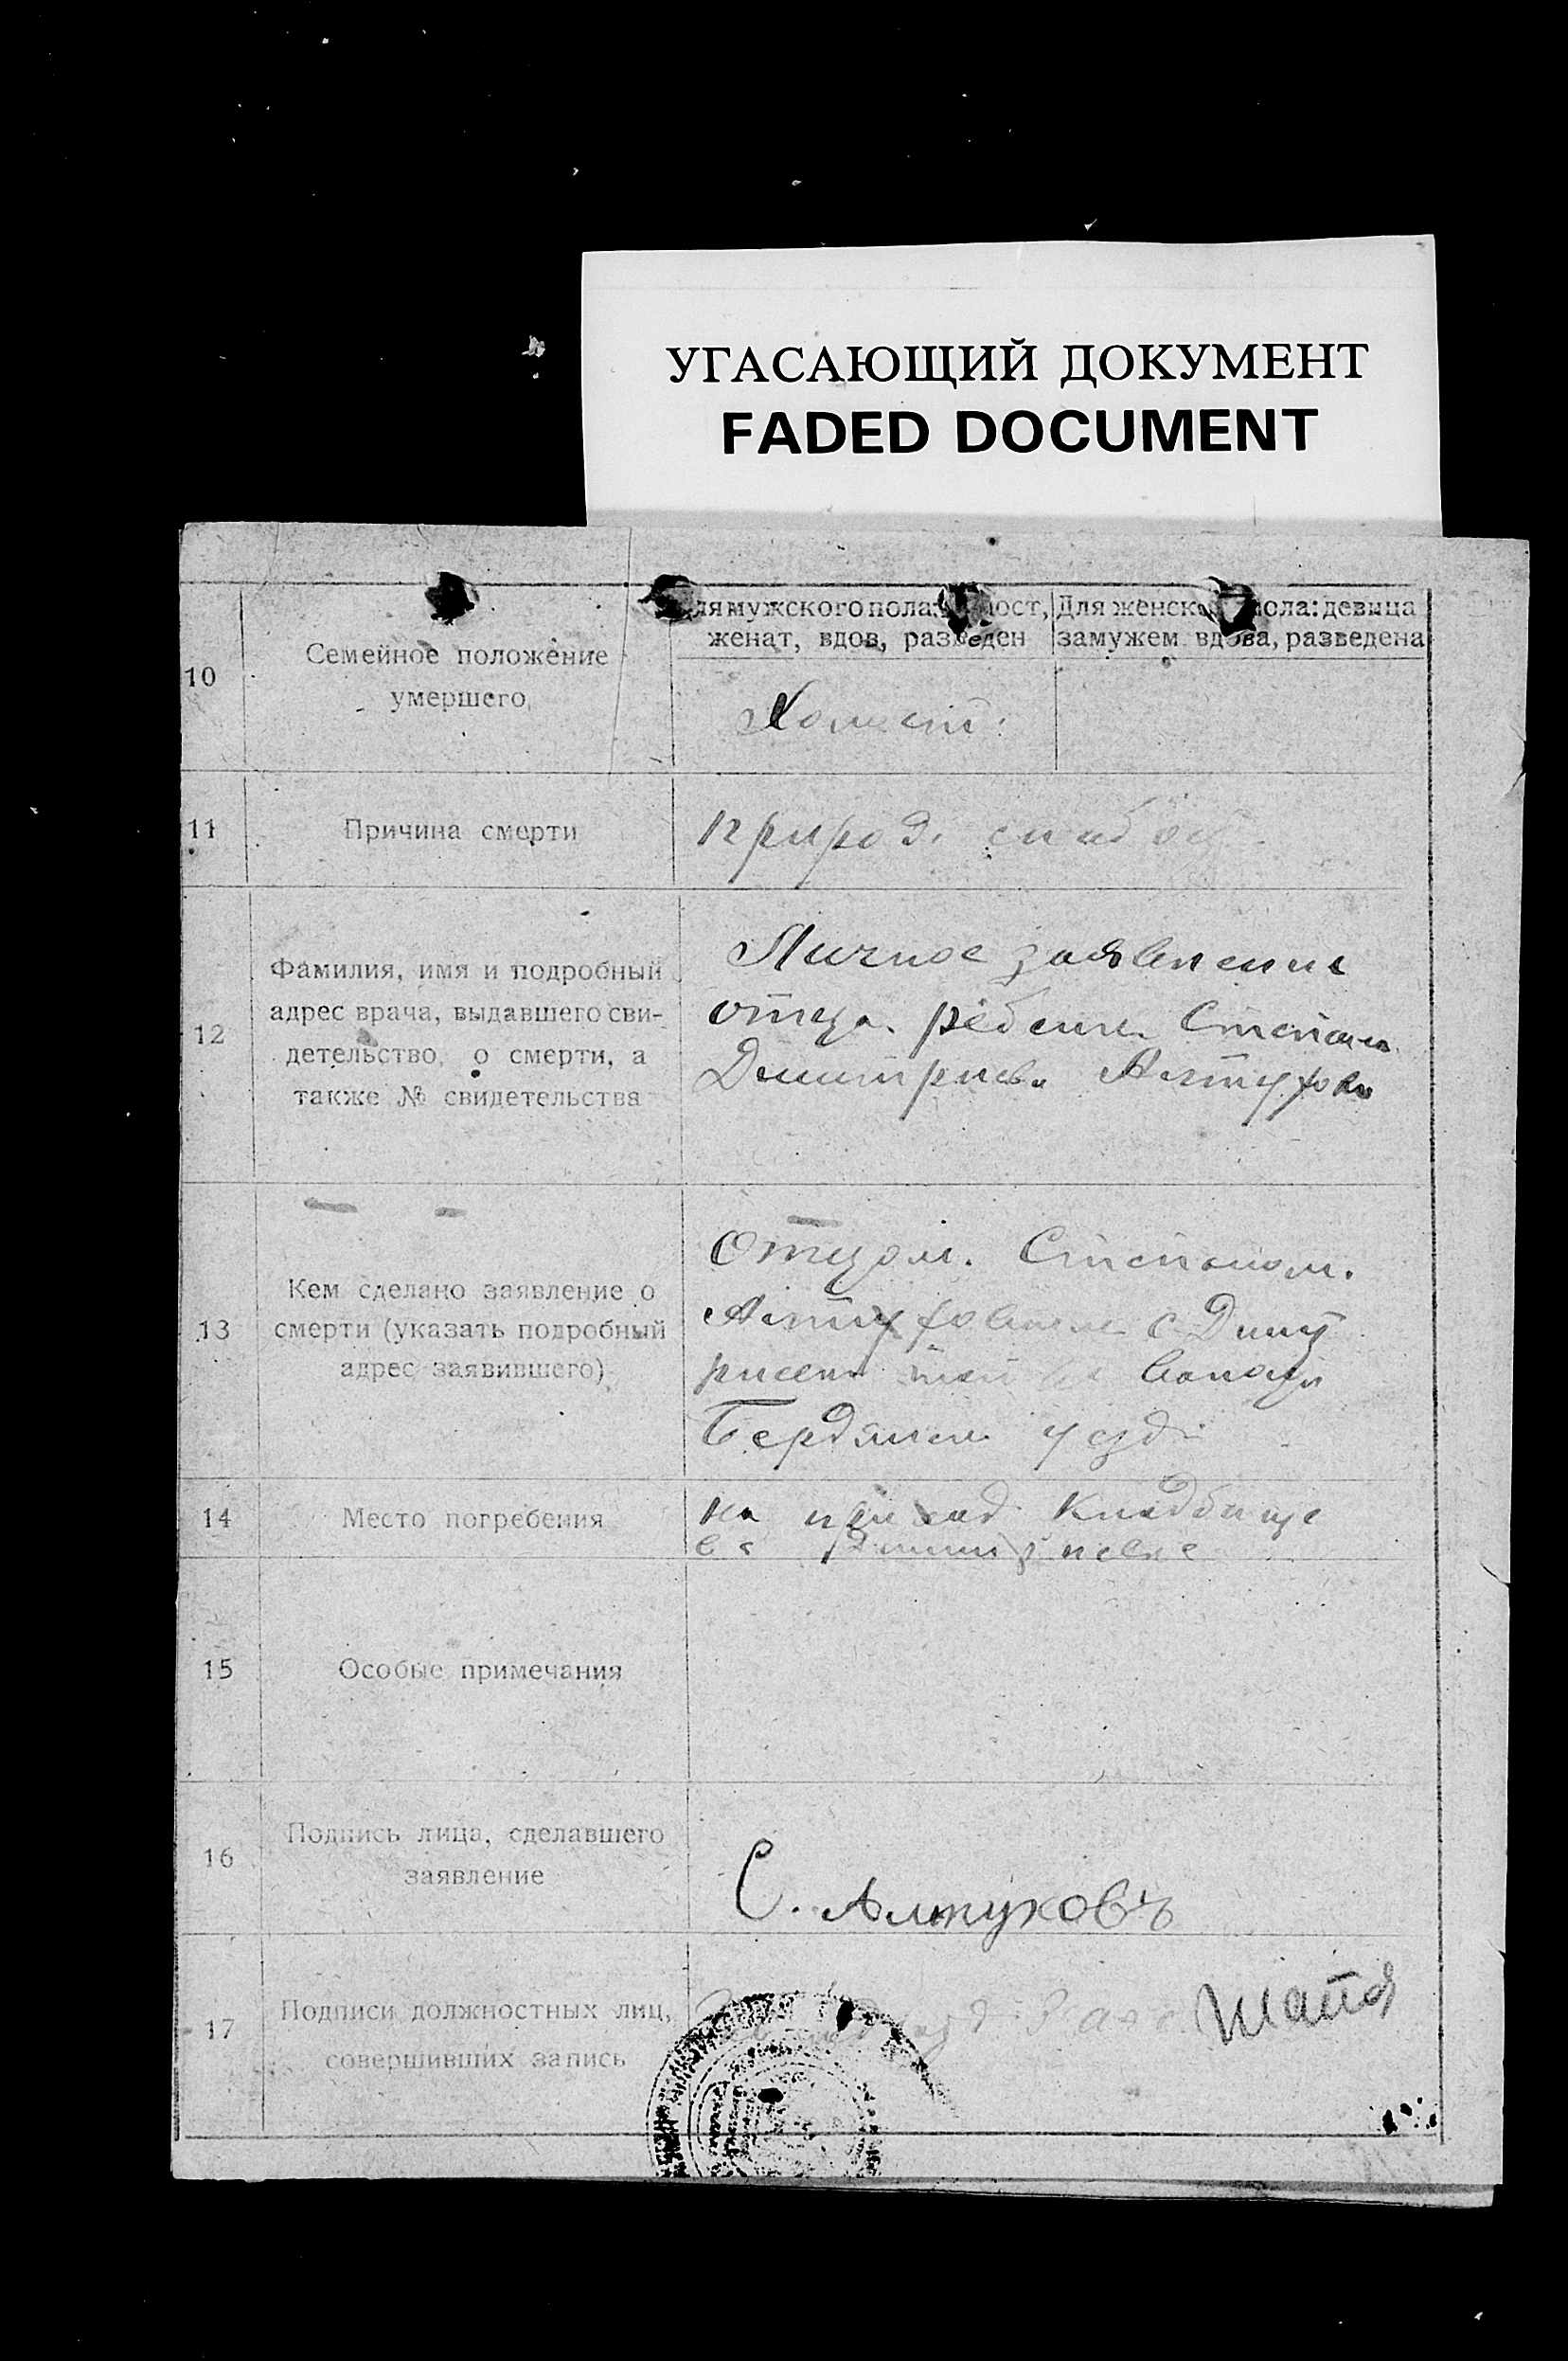 УГАСАЮЩИЙ ДОКУМЕНТ
FADED DOCUMENT
10
Семейное положение
умершего
женат, вдов, разведен
Для женск ола: девица
замужем вдова, разведена
Холост.
11
Причина смерти
природ. слабост
12
Фамилия, имя и подробный
адрес врача, выдавшего сви-
детельство о смерти, а
также № свидетельства
Личное заявление
отца ребенка Степана
Дмитриева Алтухова
13
Кем сделано заявление о
смерти (указать подробный
адрес заявившего)
Отцом. Степаном.
Алтуховым с Дмит
риевки волости
Бердянск уезд
14
Место погребения
на приход кладбище
в с Дмитриевке
15
Особые примечания
16
Подпись лица, сделавшего
заявление
С. Алтуховъ
17
Подписи должностных лиц,
совершивших запись